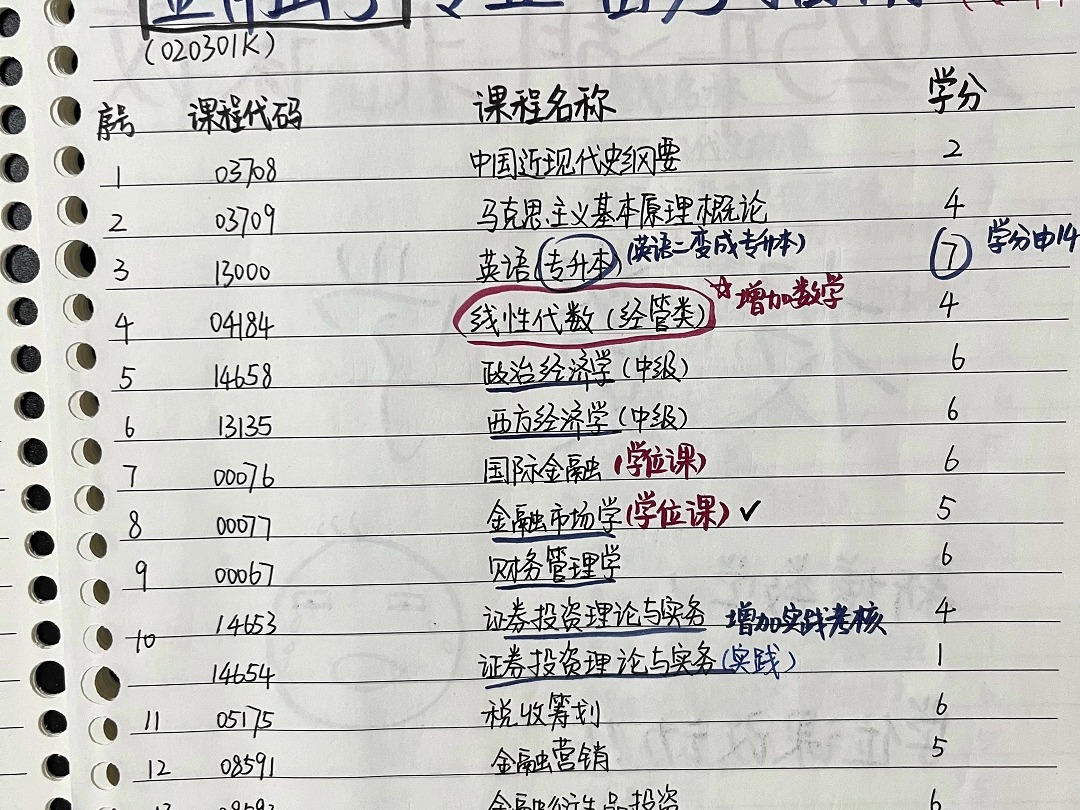 (020301K)
序号 课程代码 课程名称 学分
1 03708 中国近现代史纲要 2
2 03709 马克思主义基本原理概论 4
3 13000 英语(专升本)(英语二变成专升本) 7 学分由14
4 04184 线性代数(经管类) ☆增加数学 4
5 14658 政治经济学(中级) 6
6 13135 西方经济学(中级) 6
7 00076 国际金融(学位课) 6
8 00077 金融市场学(学位课)✓ 5
9 00067 财务管理学 6
10 14653 证券投资理论与实务 增加实践考核 4
14654 证券投资理论与实务(实践) 1
11 05175 税收筹划 6
12 08591 金融营销 5
金融衍生品投资 6